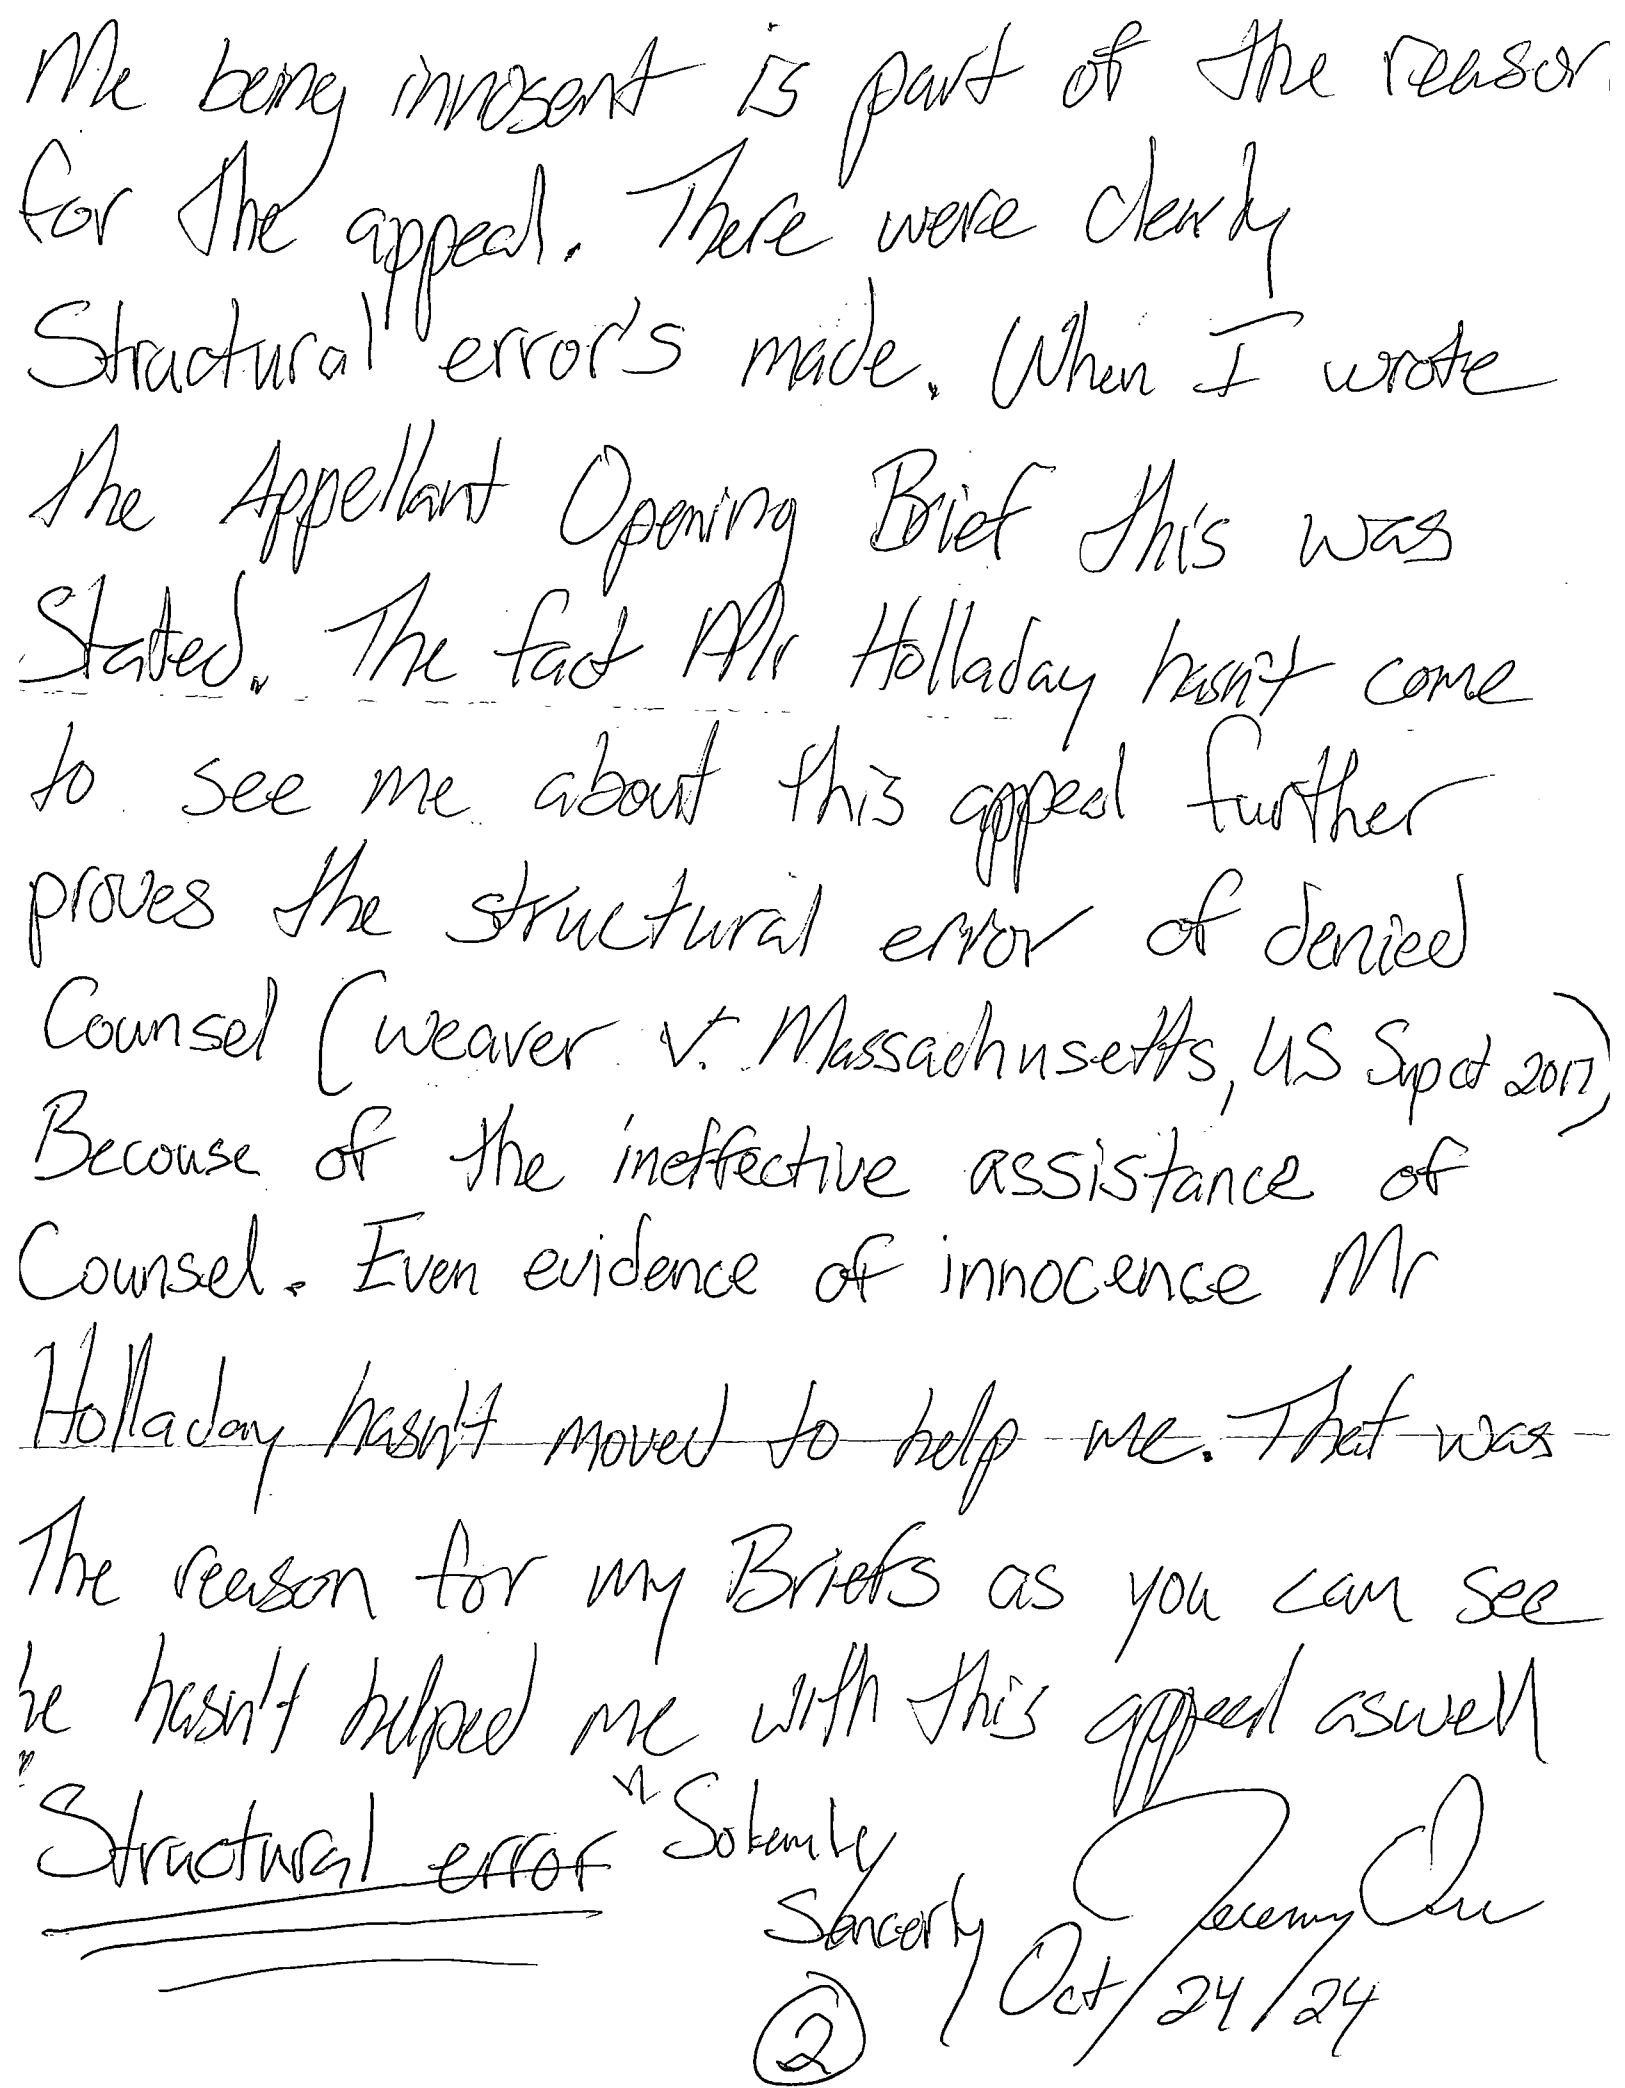 Me being innosent is part of the reason
for the appeal. There were clearly
Structural error's made. When I wrote
the Appellant Opening Brief this was
Stated. The fact Mr Holladay hasn't come
to see me about this appeal further
proves the structural error of denied
Counsel (Weaver v. Massachusetts, US Sup ct 2017)
Becouse of the ineffective assistance of
Counsel. Even evidence of innocence Mr
Holladay hasn't moved to help me. That was
The reason for my Briefs as you can see
he hasn't helped me with this appeal aswell
"Structural error" Solemnly
Sencerly Jeremy
Oct/24/24
2